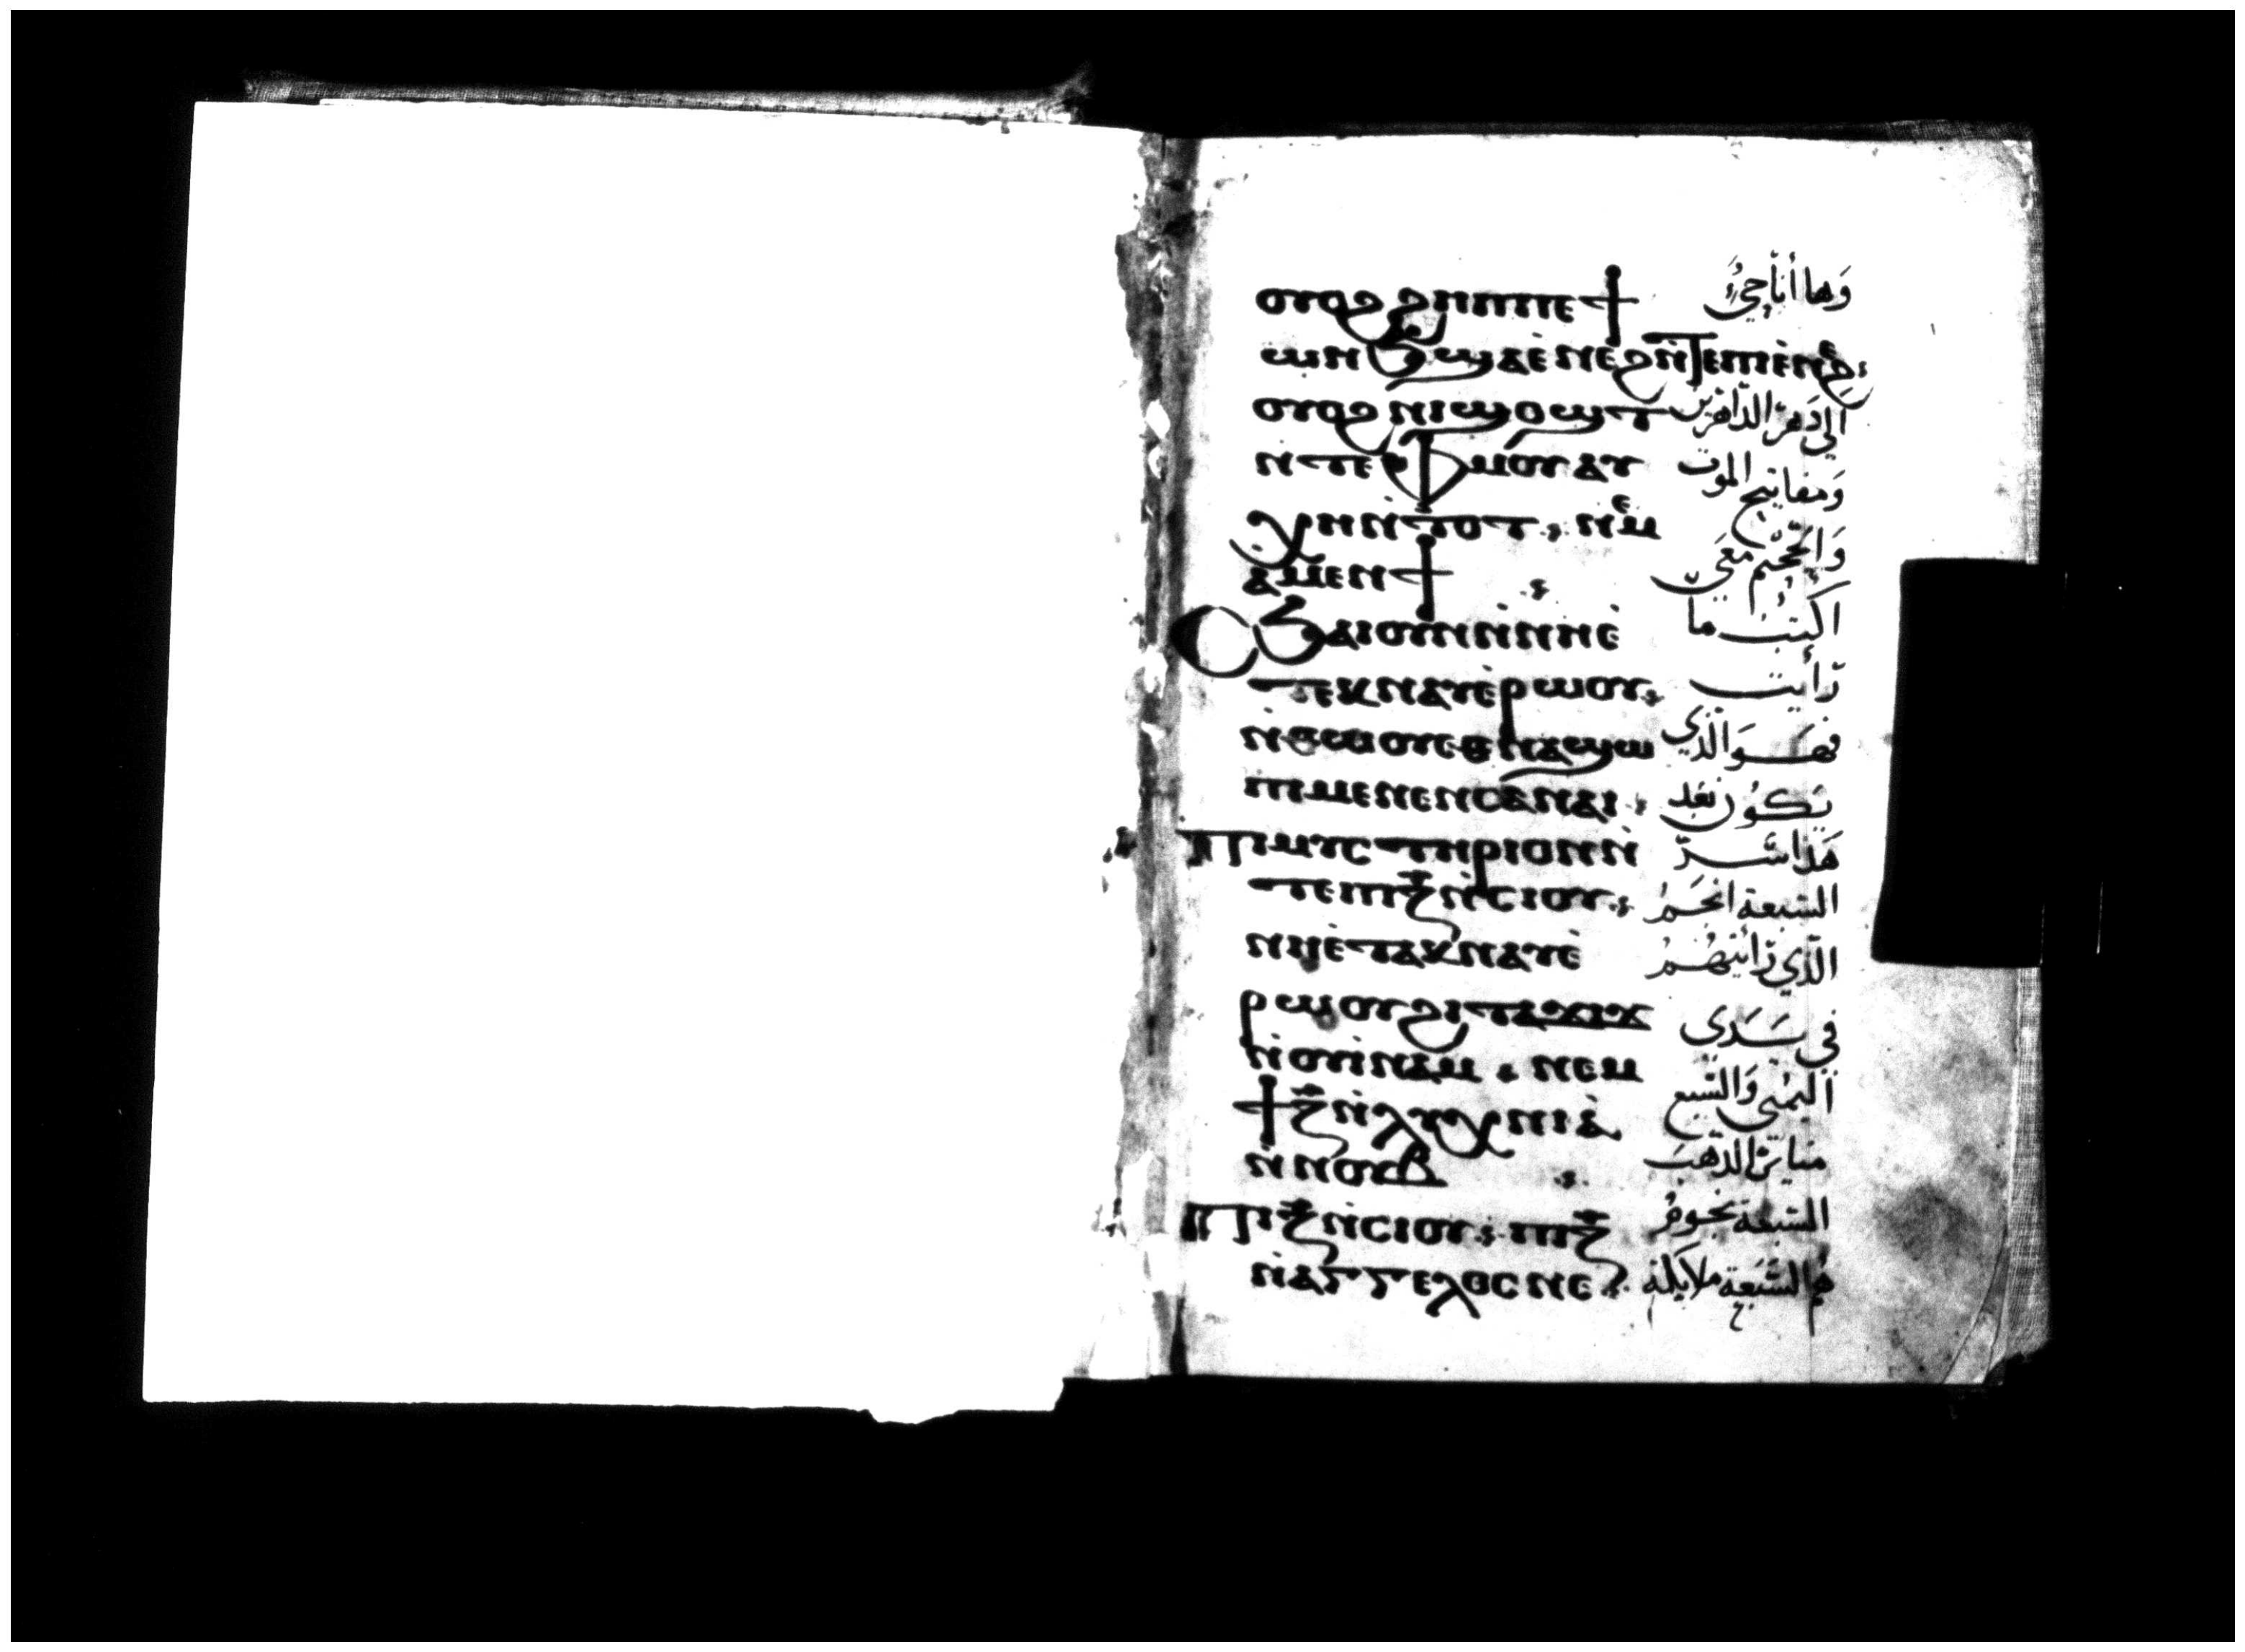 ⲟⲩⲟϩ ϩⲏⲡⲡⲉ ϯ
ⲱⲛϧ ϣⲁⲉ̀ⲛⲉϩ ⲛ̀ⲧⲉ ⲡⲓⲉ̀ⲛⲉϩ:
ⲟⲩⲟϩ ⲛⲓϣⲟϣⲧ
ⲛ̀ⲧⲉ ⲫⲙⲟⲩ ⲁⲩ
ⲭⲏ ⲛ̀ⲧⲟⲧ, ⲛⲉⲙ
ⲁⲙⲉⲛϯ
Ⲥϧⲁⲓ ⲟⲩⲛ ⲛ̀ⲛⲏⲉ̀
ⲧⲉⲕⲛⲁⲩ ⲉ̀ⲣⲱⲟⲩ:
ⲛ̀ⲑⲱⲟⲩ ⲉⲑⲛⲁϣⲱ
ⲡⲓ ⲙⲉⲛⲉⲛⲥⲁ ⲛⲁⲓ:
Ⲡⲓⲙⲩⲥⲧⲏⲣⲓⲟⲛ ⲛ̀
ⲧⲉ ⲡⲓⲍ̅ ⲛ̀ⲥⲓⲟⲩ:
ⲛⲏⲉ̀ⲧⲁⲕⲛⲁⲩ ⲉ̀
ⲣⲱⲟⲩ ϩⲓ ⲧⲁϫⲓϫ
ⲛ̀ⲟⲩⲓ̀ⲛⲁⲙ . ⲛⲉⲙ
ϯⲍ̅ ⲛ̀ⲗⲩⲭⲛⲓⲁ̀
ⲛ̀ⲛⲟⲩⲃ
Ⲡⲓⲍ̅ ⲛ̀ⲥⲓⲟⲩ: ⲡⲓⲍ̅
ⲛ̀ⲁⲅⲅⲉⲗⲟⲥ ⲛⲉ:
وَها أنَا حَيٌّ
الى دَهر الدّاهرين
وَمفاتيح الموت
وَالجحيم معَي
اكتبُ ما
رَأيت
فهَـوَ الّذي
يَكوُن بَعد
هَذا سّـرّ
السَبعة انجَمْ
الّذي رَأيتهُمْ
في يَـدَى
اليمُنى وَالسَبع
منايرَ الذّهَب
السَبعة نجومْ
هُم السَّبعة ملايكة